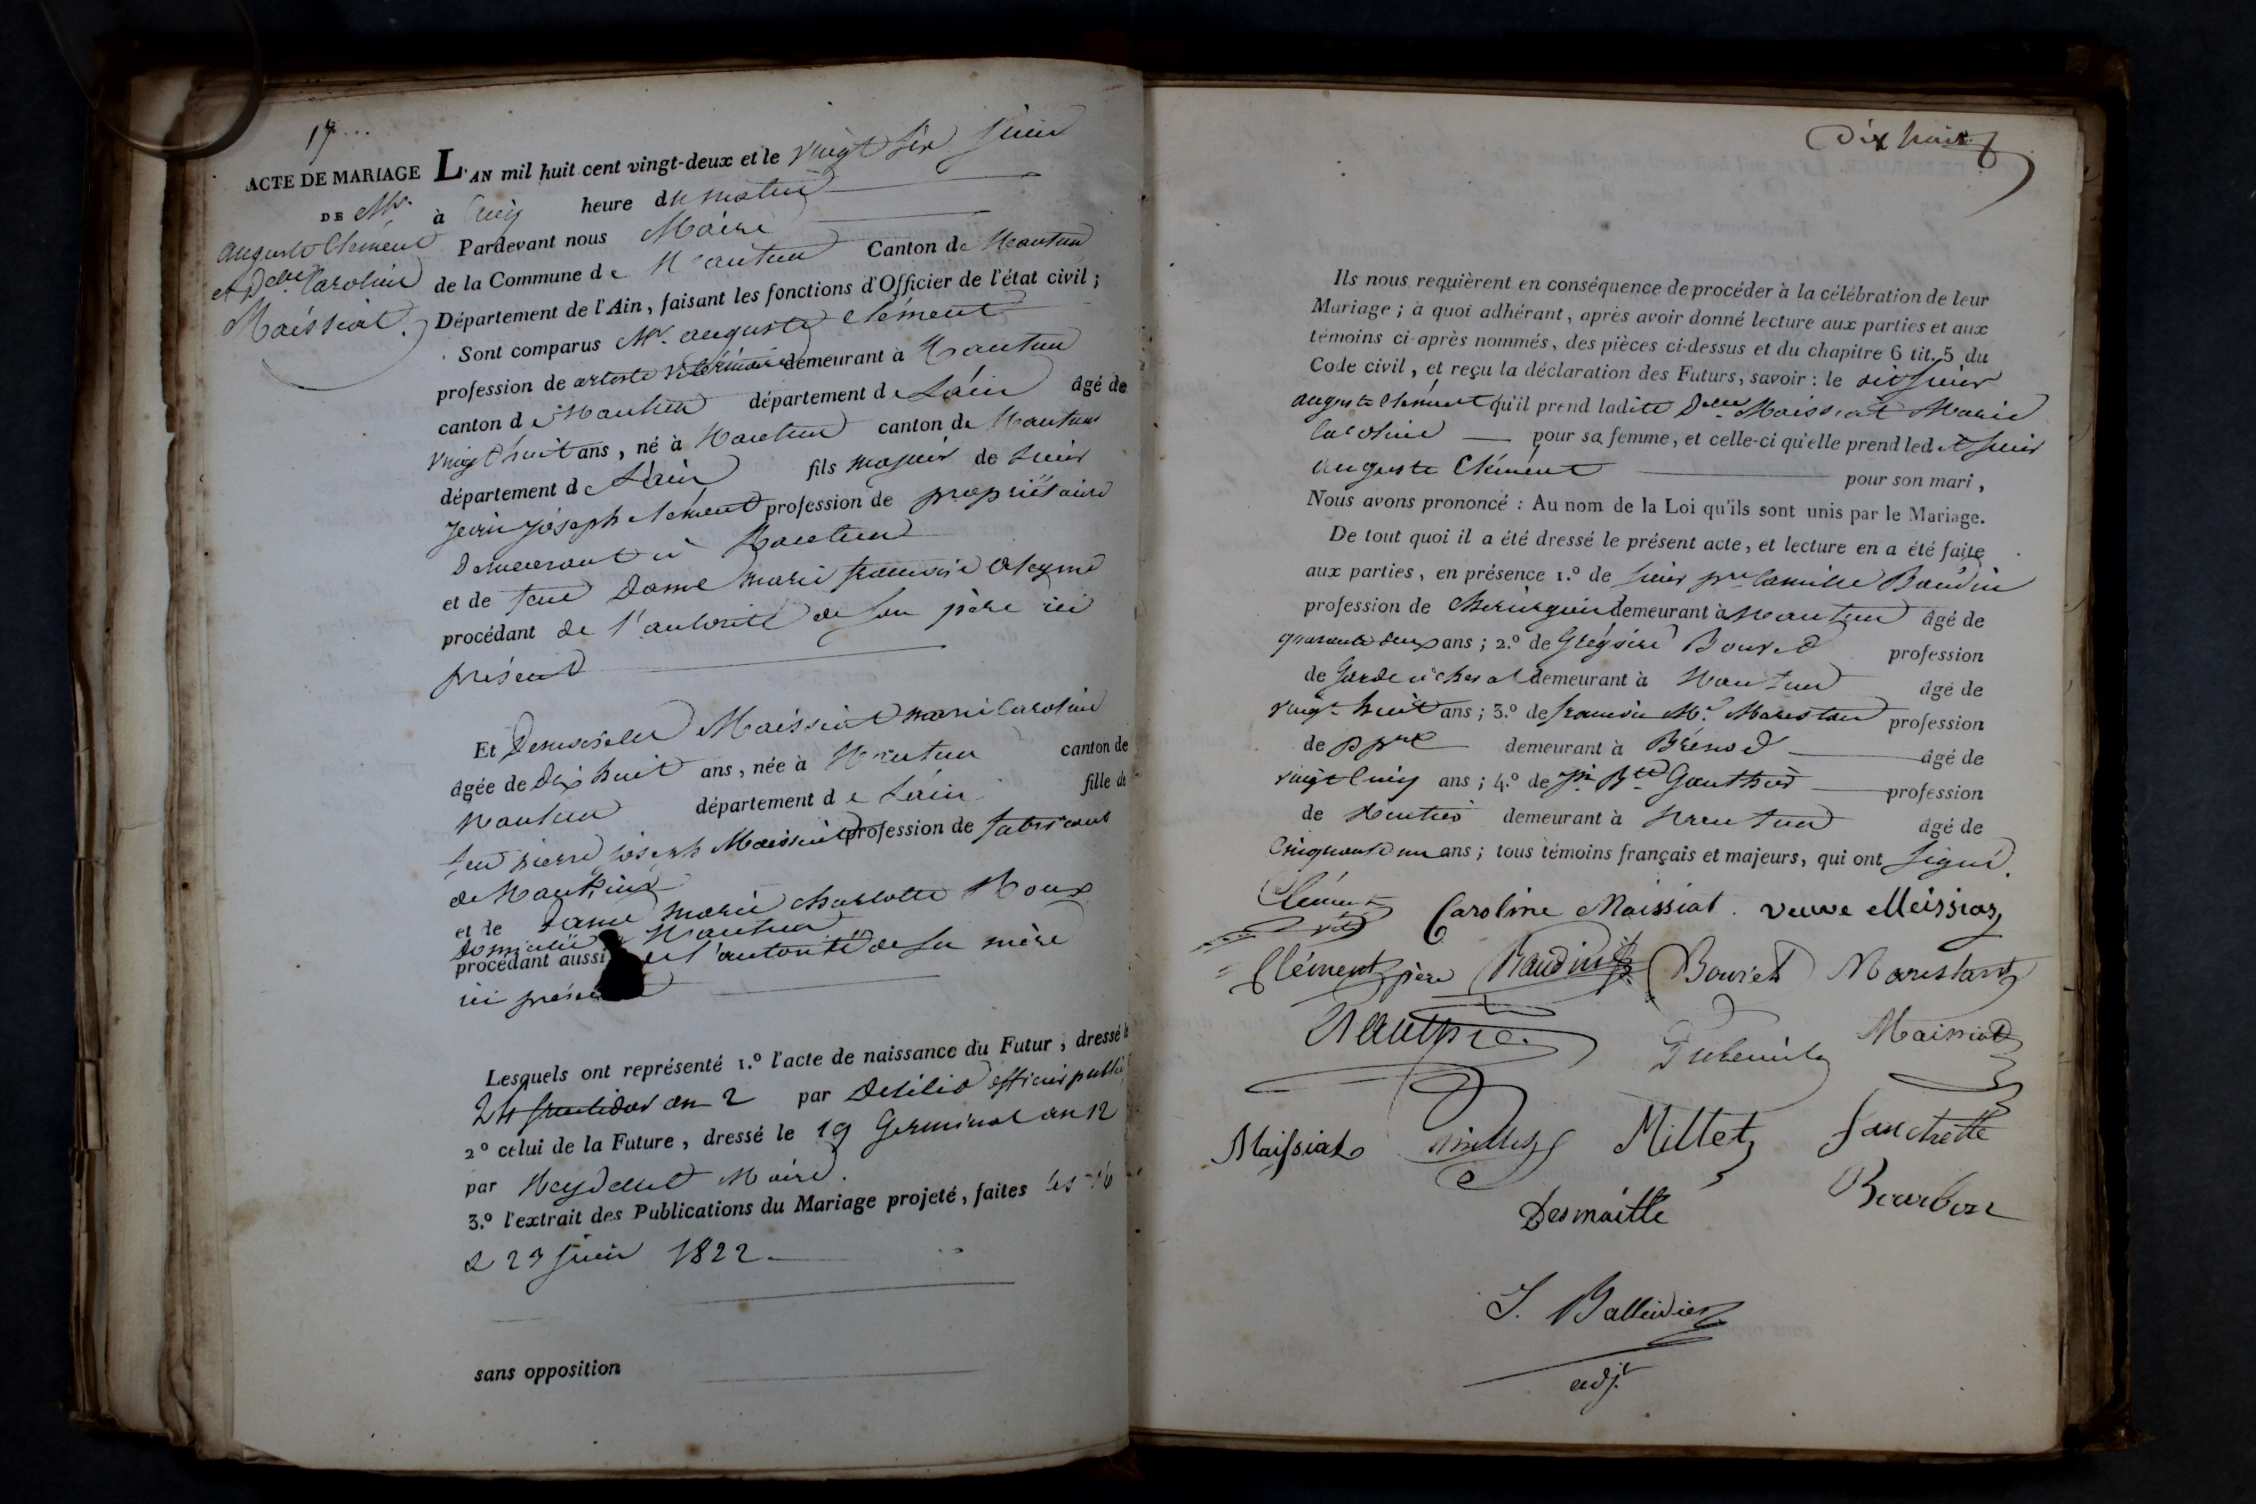 17...
ACTE DE MARIAGE
DE Mr.
auguste Clément
et Delle Caroline
Maissiat.
L'AN mil huit cent vingt-deux et le vingt six juin
à cinq heure du matin
Pardevant nous Maire
de la Commune de Nantua Canton de Nantua
Département de l'Ain, faisant les fonctions d'Officier de l'état civil;
Sont comparus Mr. auguste clément
profession de artiste vétérinaire demeurant à Nantua
canton de Nantua département de L'ain âgé de
vingt huit ans, né à Nantua canton de Nantua
département de L'ain fils majeur de sieur
jean joseph clément profession de propriétaire
demeurant à Nantua
et de feue Dame marie françoise
procédant de l'autorité de son père ici
présent
Et Demoiselle Maissiat marie Caroline
âgée de Dix huit ans, née à Nantua canton de
Nantua département de L'ain fille de
feu pierre joseph Maissiat profession de fabricant
de Nankins
et de Dame marie charlotte Roux
domiciliée à Nantua
procédant aussi de l'autorité de sa mère
ici présente
Lesquels ont représenté 1.º l'acte de naissance du Futur, dressé le
24 an 2 par Delilia officier public
2º celui de la Future, dressé le 19 Germinal an 12
par Maire.
3.º l'extrait des Publications du Mariage projeté, faites les 16
& 23 juin 1822
sans opposition
Dix huit
Ils nous requièrent en conséquence de procéder à la célébration de leur
Mariage; à quoi adhérant, après avoir donné lecture aux parties et aux
témoins ci-après nommés, des pièces ci-dessus et du chapitre 6 tit. 5 du
Code civil, et reçu la déclaration des Futurs, savoir: le dit sieur
auguste Clément qu'il prend ladite Delle Maissiat Marie
Caroline pour sa femme, et celle-ci qu'elle prend ledit sieur
auguste Clément pour son mari,
Nous avons prononcé: Au nom de la Loi qu'ils sont unis par le Mariage.
De tout quoi il a été dressé le présent acte, et lecture en a été faite
aux parties, en présence 1.º de sieur pre Camille Baudin
profession de chirurgien demeurant à Nantua âgé de
quarante deux ans; 2.º de Grégoire Bouret profession
de Garde à cheval demeurant à Nantua âgé de
vingt huit ans; 3.º de françois Mie Marestan profession
de ppre demeurant à Brénod âgé de
vingt cinq ans; 4.º de Jn Bte Gauthier profession
de Rentier demeurant à Nantua âgé de
cinquante un ans; tous témoins français et majeurs, qui ont signé.
Clément Caroline Maissiat. veuve Meissiat
Clément père Baudin Bouret Marestan
Gauthier Maissiat
Maissiat Millet Millet Fanchette
Desmaille Bourbon
J. Ballivier
adjt